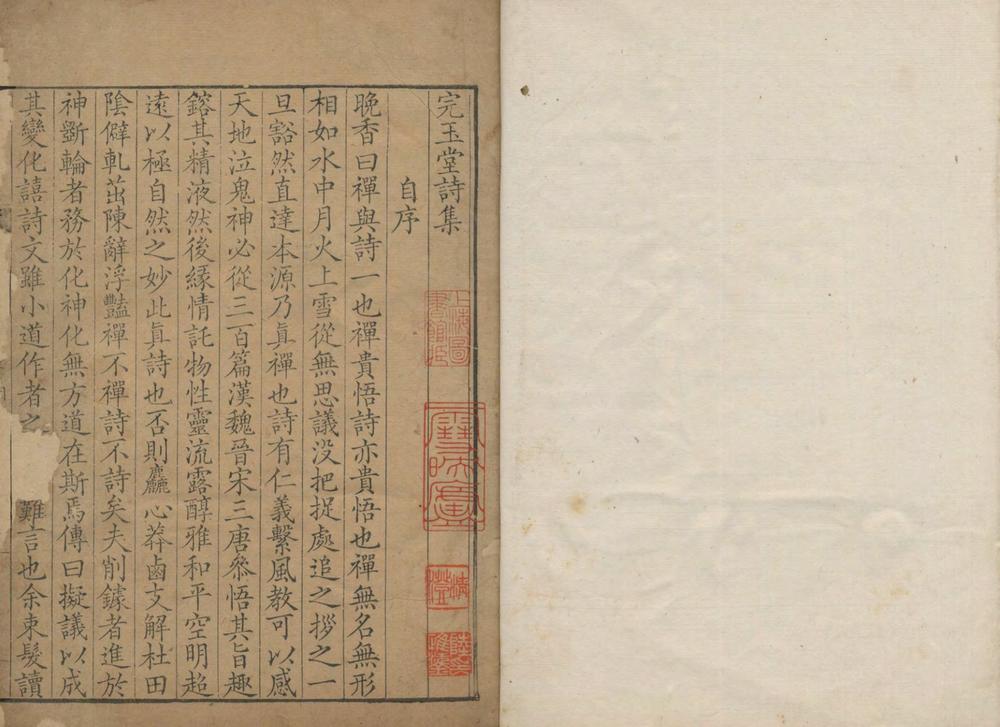 完玉堂詩集
自序
晚香曰禪與詩一也禪貴悟詩亦貴悟也禪無名無形
相如水中月火上雪從無思議没把捉處追之拶之一
旦豁然直達本源乃真禪也詩有仁義繫風教可以感
天地泣鬼神必從三百篇漢魏晉宋三唐叅悟其旨趣
鎔其精液然後緣情託物性靈流露醇雅和平空明超
遠以極自然之妙此真詩也否則麤心莽鹵支解杜田
陰僻軋茁陳辭浮豔禪不禪詩不詩矣夫削鐻者進於
神斵輪者務於化神化無方道在斯焉傳曰擬議以成
其變化譆詩文雖小道作者之
難言也余束髮讀
上海圖書館藏